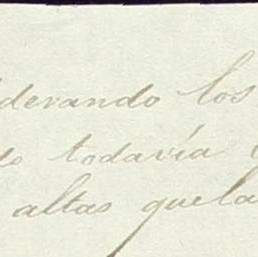 derando los
do todavía
altas quela